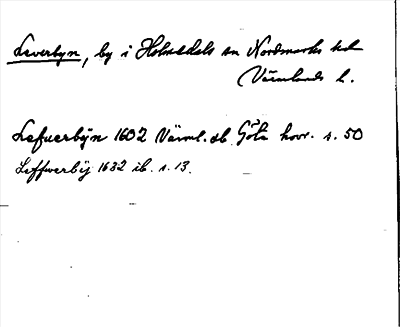 Leverbyn, by i Holmedals sn Nordmarks hd
Värmlands l.
Lefuerbÿn 1602 Värml. sb. Göta hovr. s. 50
Leffwerbÿ 1632 ib. s. 13.